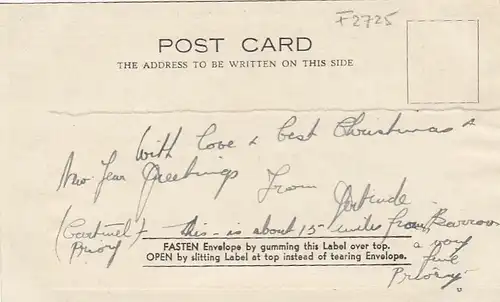 F2725
POST CARD
THE ADDRESS TO BE WRITTEN ON THIS SIDE
With love & best Christmas &
New Year Greetings From Gertrude
(Cartmel Priory) This is about 15 miles from Barrow
a very
fine
Priory.
FASTEN Envelope by gumming this Label over top.
OPEN by slitting Label at top instead of tearing Envelope.